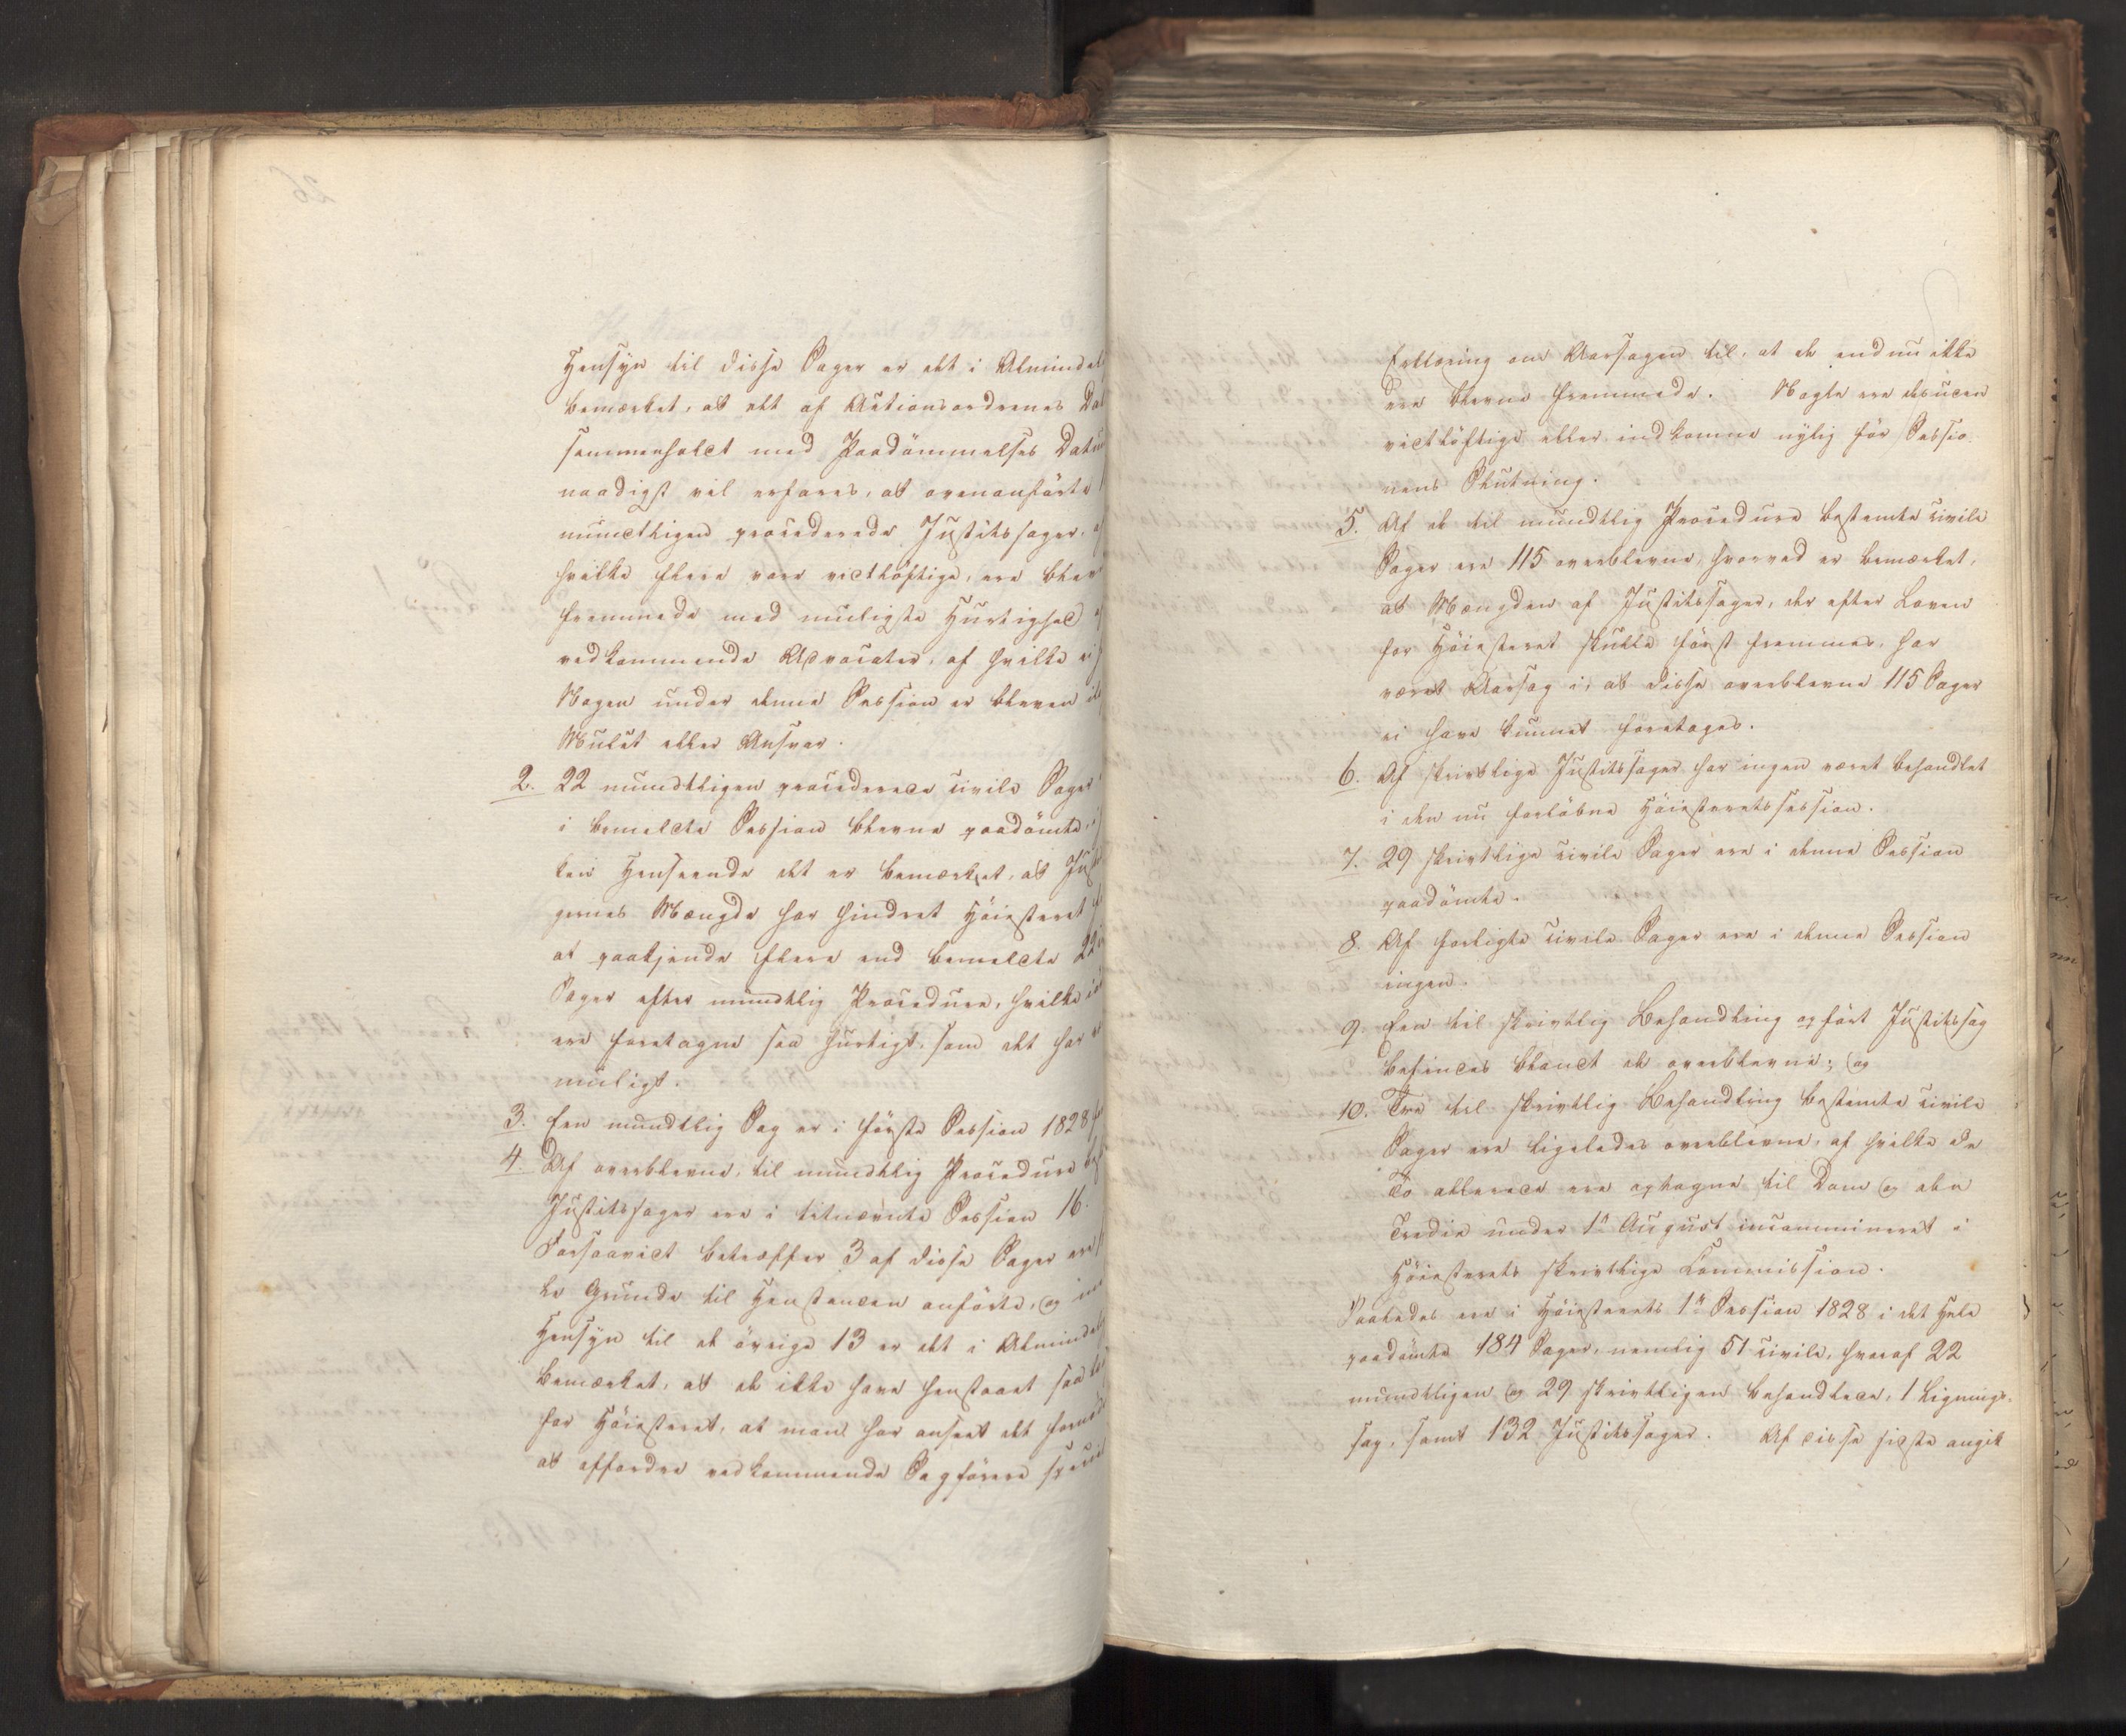 Hensyn til disse Sager er det i Almindel
bemærket, at det af Actionsordrenes Dat
sammenholdt med Paadømmelses Datu
naadigst vil erfares, at ovenanførte
mundtligen procederede Justitssager,
hvilke flere vare vidtløftige, ere blev
fremmede med muligste Hurtighed
vedkommende Advocater, af hvilke ei
Nogen under denne Session er bleven
Mulct eller Ansvar.
2. 22 mundtligen procederede civile Sager
i bemeldte Session blevne paadømte,
ken Henseende det er bemærket, at Just
gernes Mængde har hindret Höiesteret
at paakjende flere end bemeldte 22
Sager efter mundtlig Procedure, hvilke
ere foretagne saa hurtigt, som det har
muligt.
3. Een mundtlig Sag er i første Session 1828
4. Af overblevne, til mundtlig Procedure
Justitssager ere i bemeldte Session 16.
Forsaavidt betræffer 3 af disse Sager ere
le Grunde til Henstanden anførte, og
Hensyn til de övrige 13 er det i Almindel
bemærket, at de ikke have henstaaet saa
for Höiesteret, at man har anseet det fornød
at affordre vedkommende Sagførere speciel
Erklæring om Aarsagen til, at de endnu ikke
ere blevne fremmede. Nogle ere desuden
vidtløftige eller indkomne nylig før Sessio
nens Slutning.
5. Af de til mundtlig Procedure bestemte civile
Sager ere 115 overblevne, hvorved er bemærket,
at Mængden af Justitssager, der efter Loven
for Höiesteret skulle først fremmes, har
været Aarsag i, at disse overblevne 115 Sager
ei have kunnet foretages.
6. Af skrivtlige Justitssager har ingen været behandlet
i den nu forløbne Höiesteretssession.
7. 29 skrivtlige civile Sager ere i denne Session
paadömte.
8. Af forligte civile Sager ere i denne Session
ingen.
9. Een til skrivtlig Behandling opført Justitssag
befindes blandt de overblevne; og
10. Tre til skrivtlig Behandling bestemte civile
Sager ere ligeledes overblevne, af hvilke de
To allerede ere optagne til Dom og den
Tredie under 1ste August incammineret i
Höiesterets skrivtlige Commission.
Saaledes ere i Höiesterets 1ste Session 1828 i det Hele
paadömte 184 Sager, nemlig 51 civile, hvoraf 22
mundtligen og 29 skrivtligen behandlede, 1 Lignings-
sag, samt 132 Justitssager. Af disse sidste angik